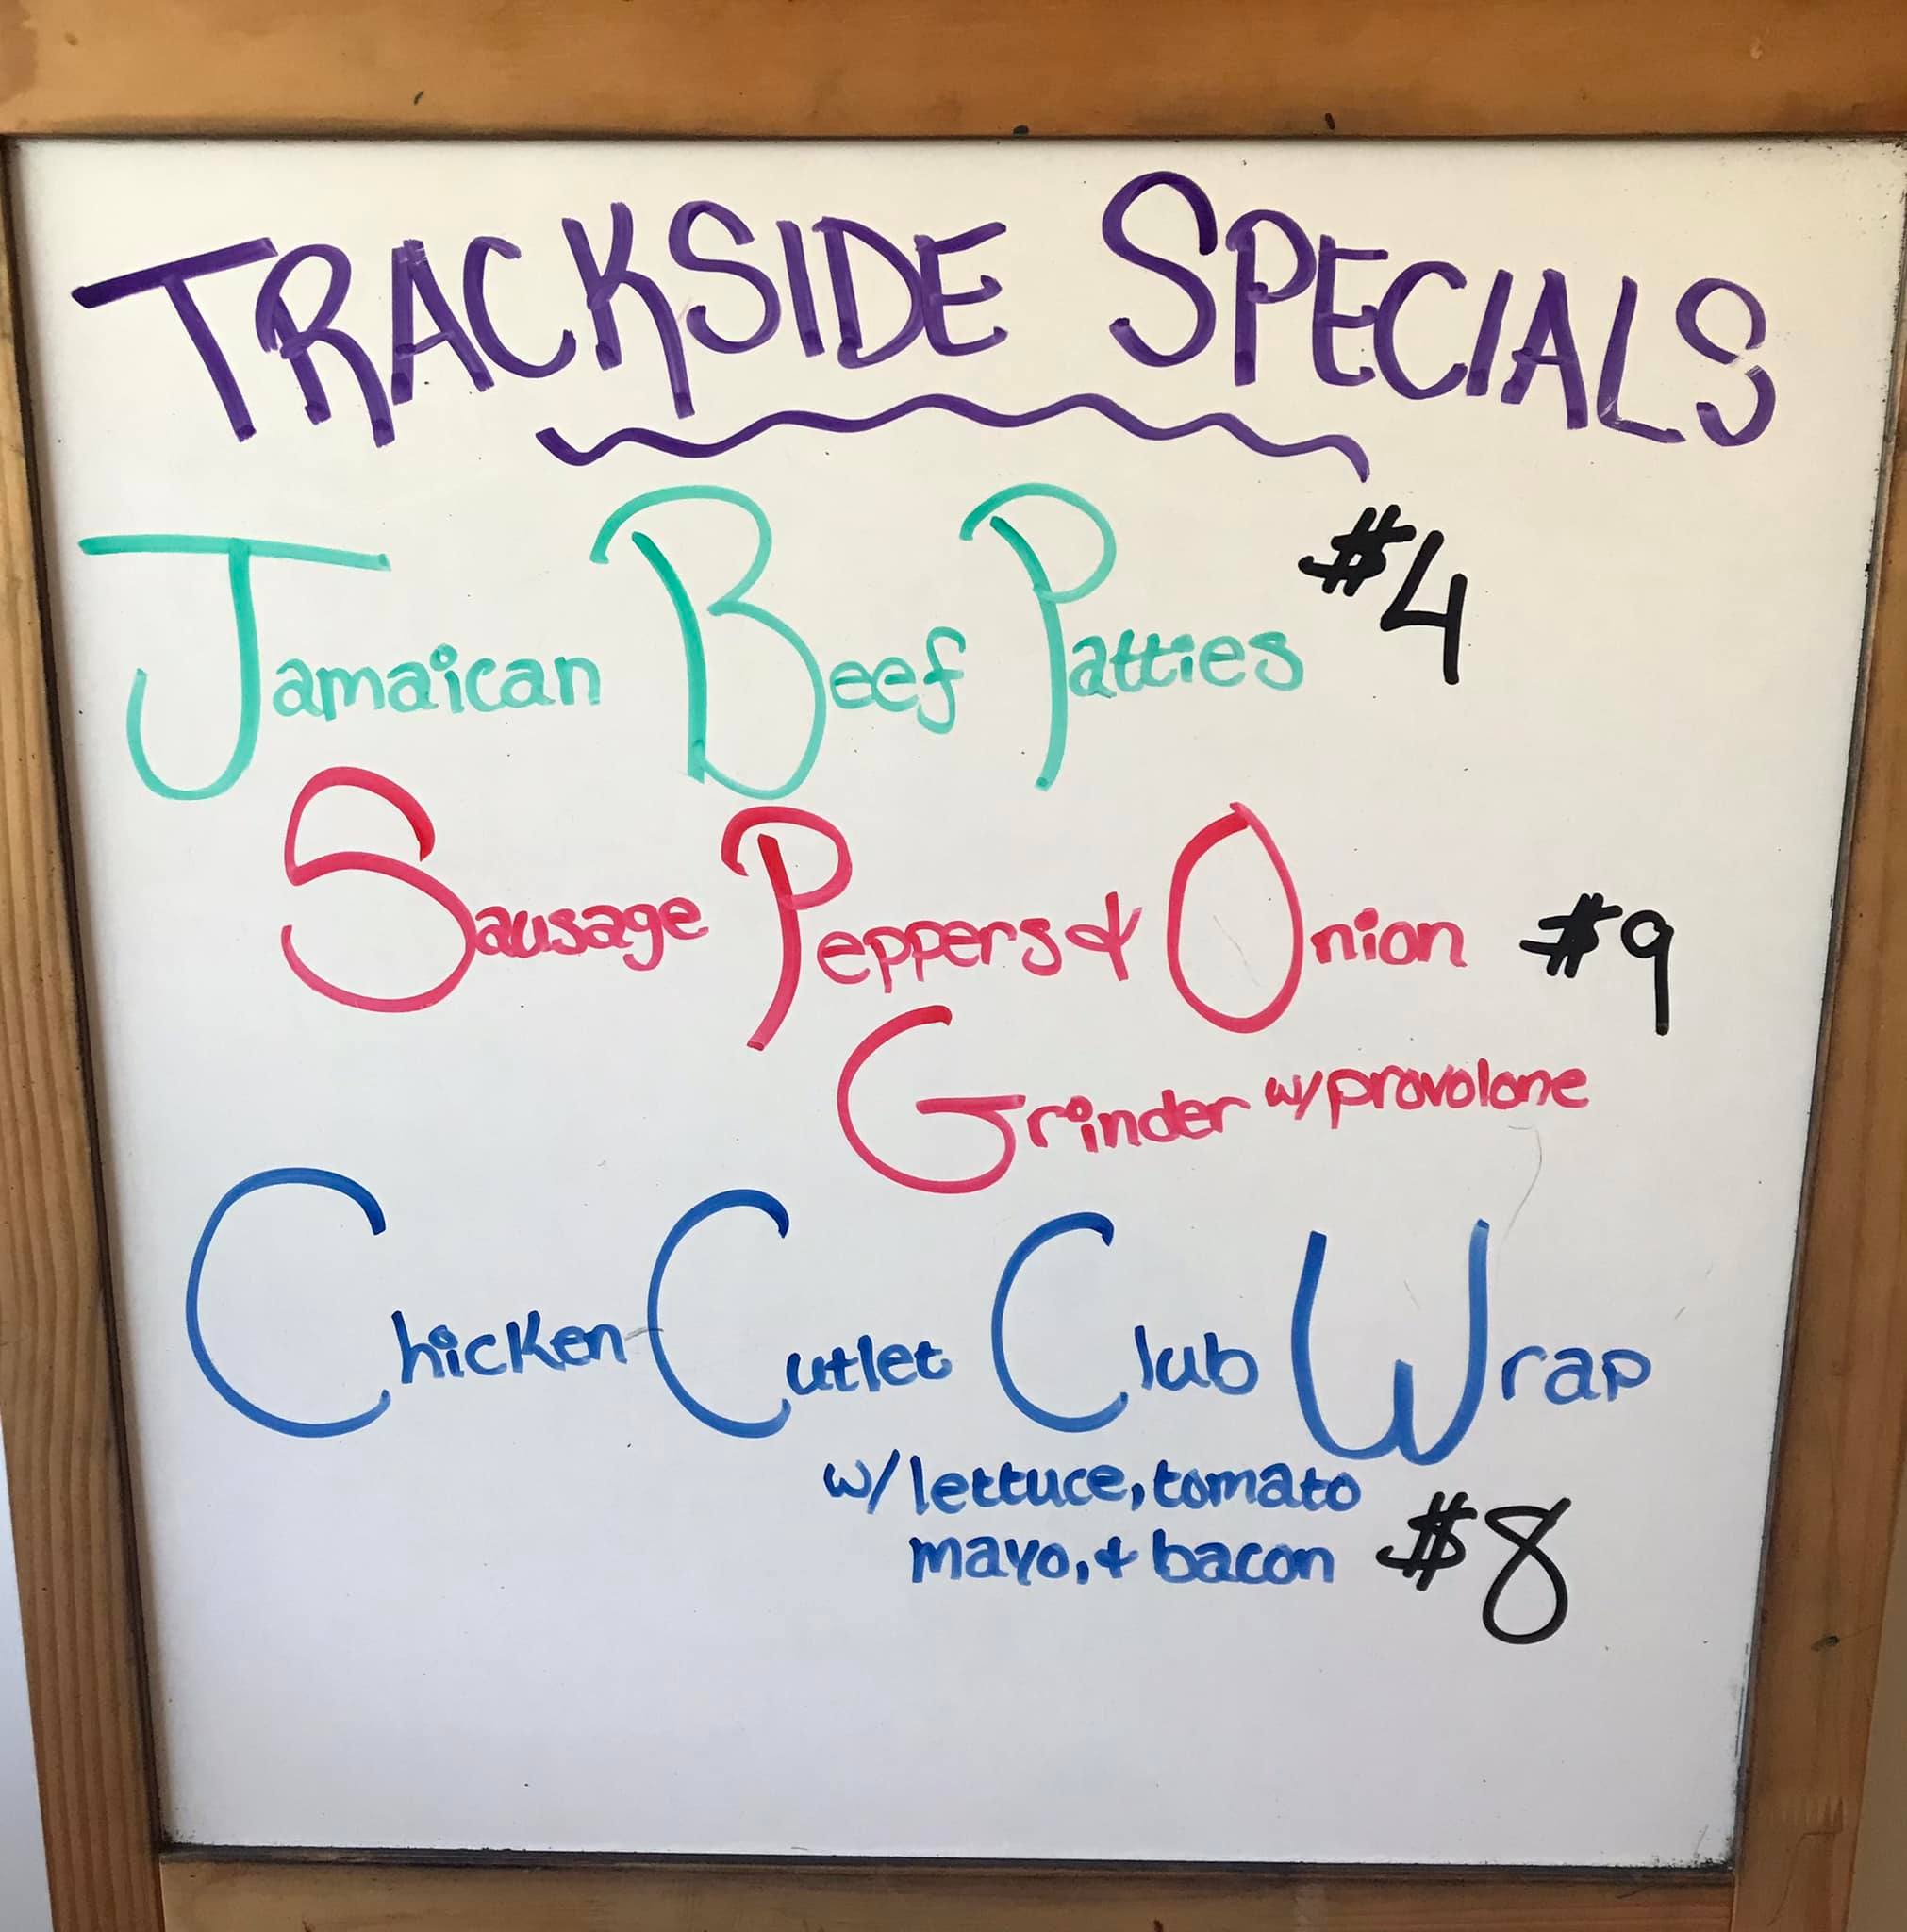 TRACKSIDE SPECIALS
Jamaican Beef Patties $4
Sausage Peppers & Onion $9
Grinder w/provolone
Chicken Cutlet Club Wrap
w/lettuce, tomato
mayo, + bacon $8